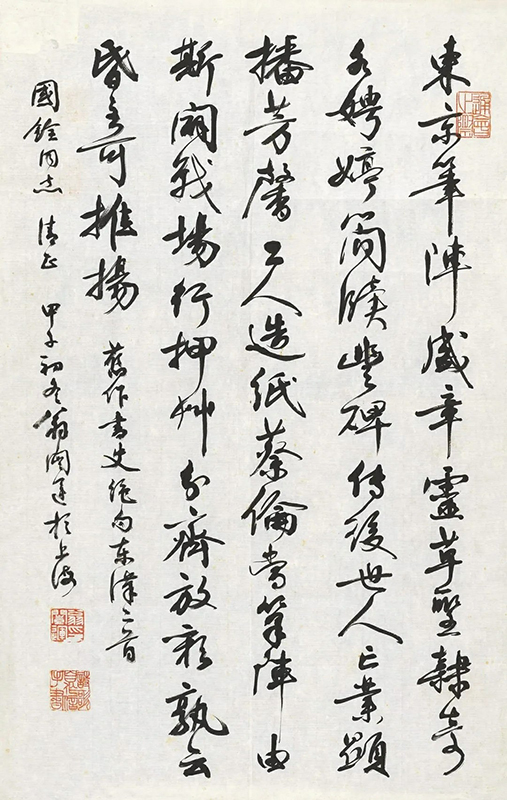 東京筆陣盛章靈草聖隸奇
各娉婷簡牘豐碑傳後世人亡業顯
播芳馨工人造紙蔡倫當筆陣由
斯闢戰場行押艸分齊放彩孰云
昏主可推揚 舊作書史絕句東漢二首
國銓同志清正 甲子初冬翁闓運於上海